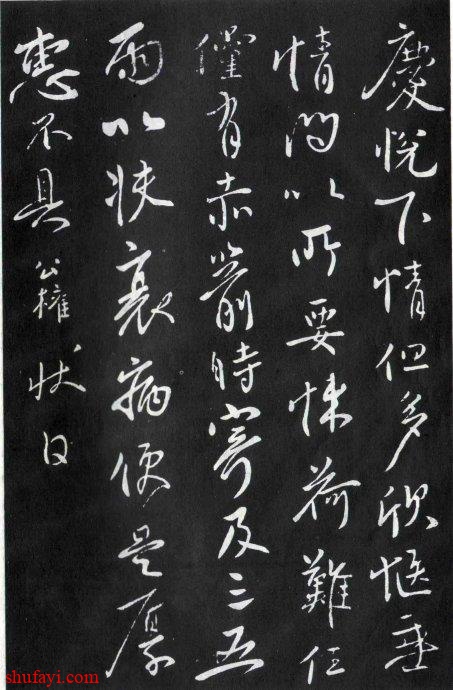 慶悅下情但多欣愜垂
情問以所要悚荷難任
儻有赤箭時寄及三五
兩以扶衰病便是厚
惠不具公權狀白
shufayi.com